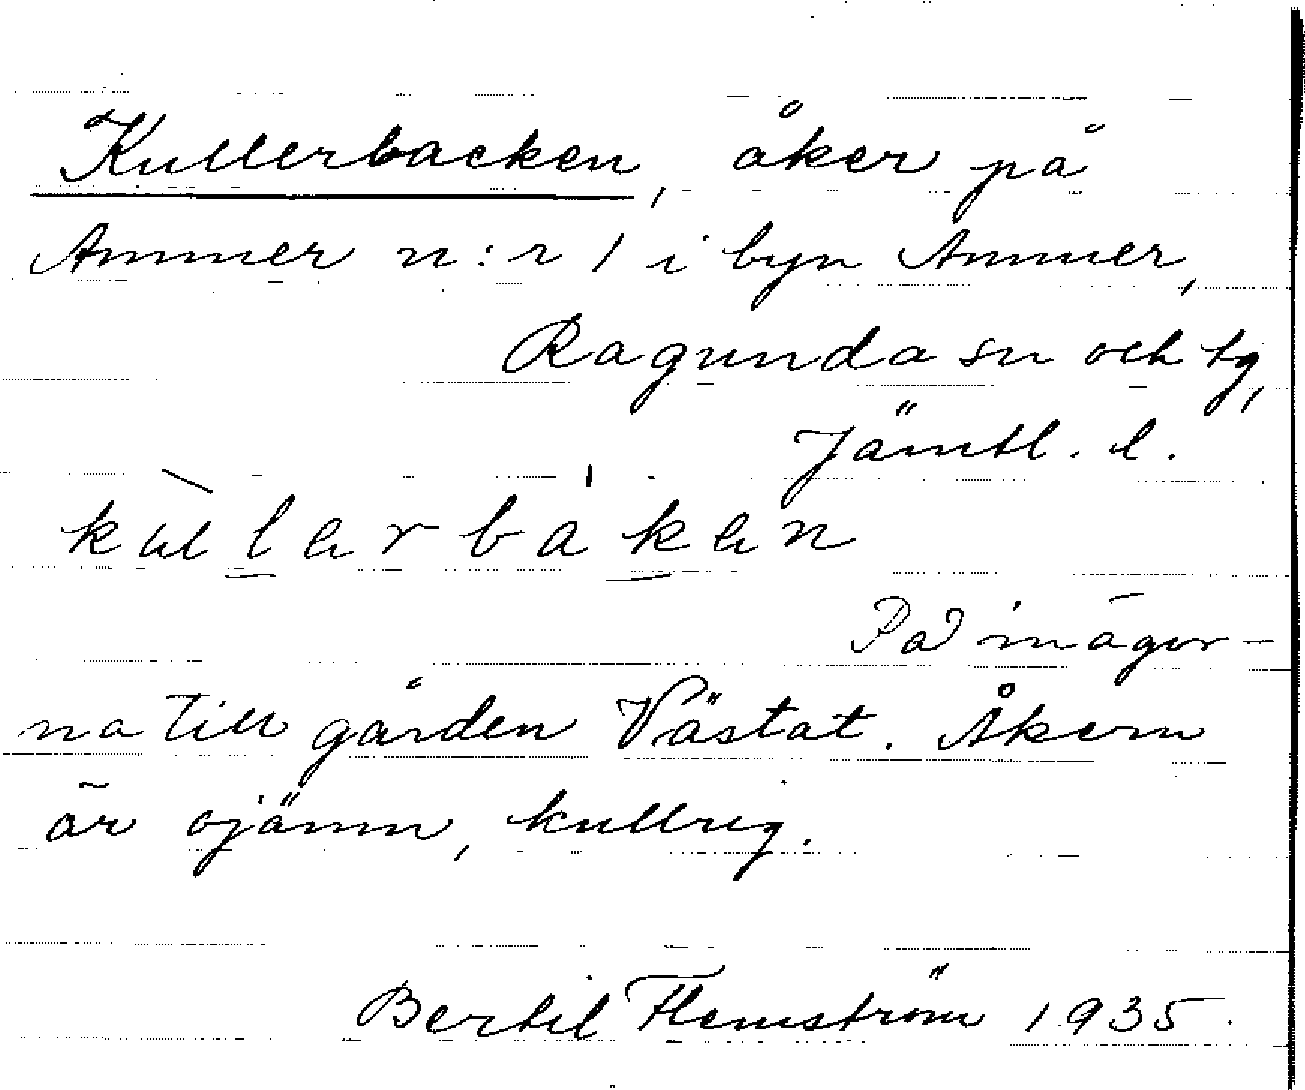 Kullerbacken, åker på
Ammer n:r 1 i byn Ammer,
Ragunda sn och tg,
Jämtl. l.
På inägor-
na till gården Västat. Åkern
är ojämn, kullrig.
Bertil Flemström 1935.